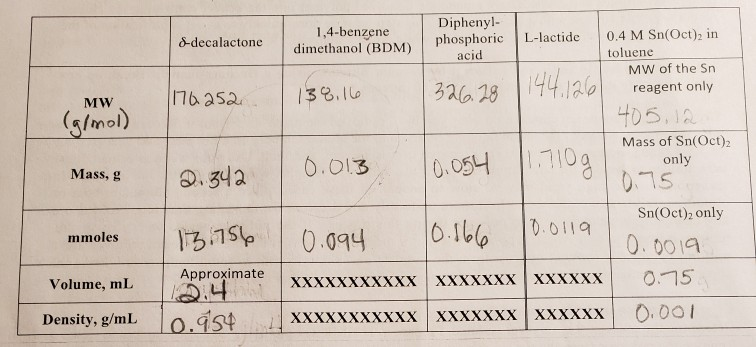 δ-decalactone
1,4-benzene
dimethanol (BDM)
Diphenyl-
phosphoric
acid
L-lactide
0.4 M Sn(Oct)₂ in
toluene
MW
(g/mol)
170.252
138.16
326.28
144.126
MW of the Sn
reagent only
405.12
Mass, g
2.342
0.013
0.054
1.710g
Mass of Sn(Oct)₂
only
0.75
mmoles
13.756
0.094
0.166
0.0119
Sn(Oct)₂ only
0.0019
Volume, mL
Approximate
2.4
XXXXXXXXXXX
XXXXXXX
XXXXXX
0.75
Density, g/mL
0.954
XXXXXXXXXXX
XXXXXXX
XXXXXX
0.001